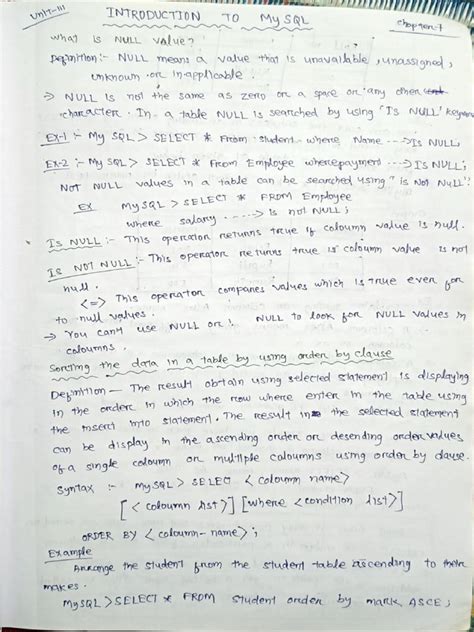 Unit-III
INTRODUCTION TO MySQL
Chapter-7
what is NULL value?
Definition:- NULL means a value that is unavailable, unassigned,
unknown or inapplicable.
→ NULL is not the same as zero or a space or any other
character. In a table NULL is searched by using 'Is NULL' keyword
Ex-1 :- My SQL > SELECT * From student where Name ....> Is NULL;
Ex-2 :- My SQL > SELECT * From Employee where payment ....> Is NULL;
Not NULL values in a table can be searched using "is Not NULL".
Ex MySQL > SELECT * FROM Employee
where salary .....> is not NULL;
Is NULL:- This operator returns true if coloumn value is null.
IS NOT NULL:- This operator returns true is coloumn value is not
null.
<=> This operator compares values which is true even for
to null values.
→ You can't use NULL or ! NULL to look for NULL values in
coloumns.
Sorting the data in a table by using order by clause
Definition — The result obtain using selected statement is displaying
in the order in which the row where enter in the table using
the insert into statement. The result in the selected statement
can be display in the ascending order or desending order values
of a single coloumn or multiple coloumns using order by clause.
Syntax :- MySQL > SELECT < coloumn name>
[< coloumn list>] [where <condition list>]
ORDER BY < coloumn-name>;
Example
Arrange the student from the student table ascending to their
makes.
MySQL > SELECT * FROM student order by mark ASCE;